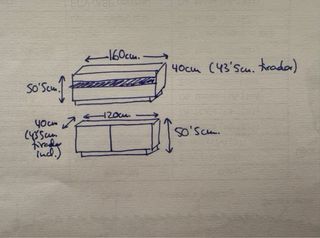 160cm.
40cm (43'5cm. tirador)
50'5cm.
120cm.
40cm
(43'5cm
tirador
incl.)
50'5cm.